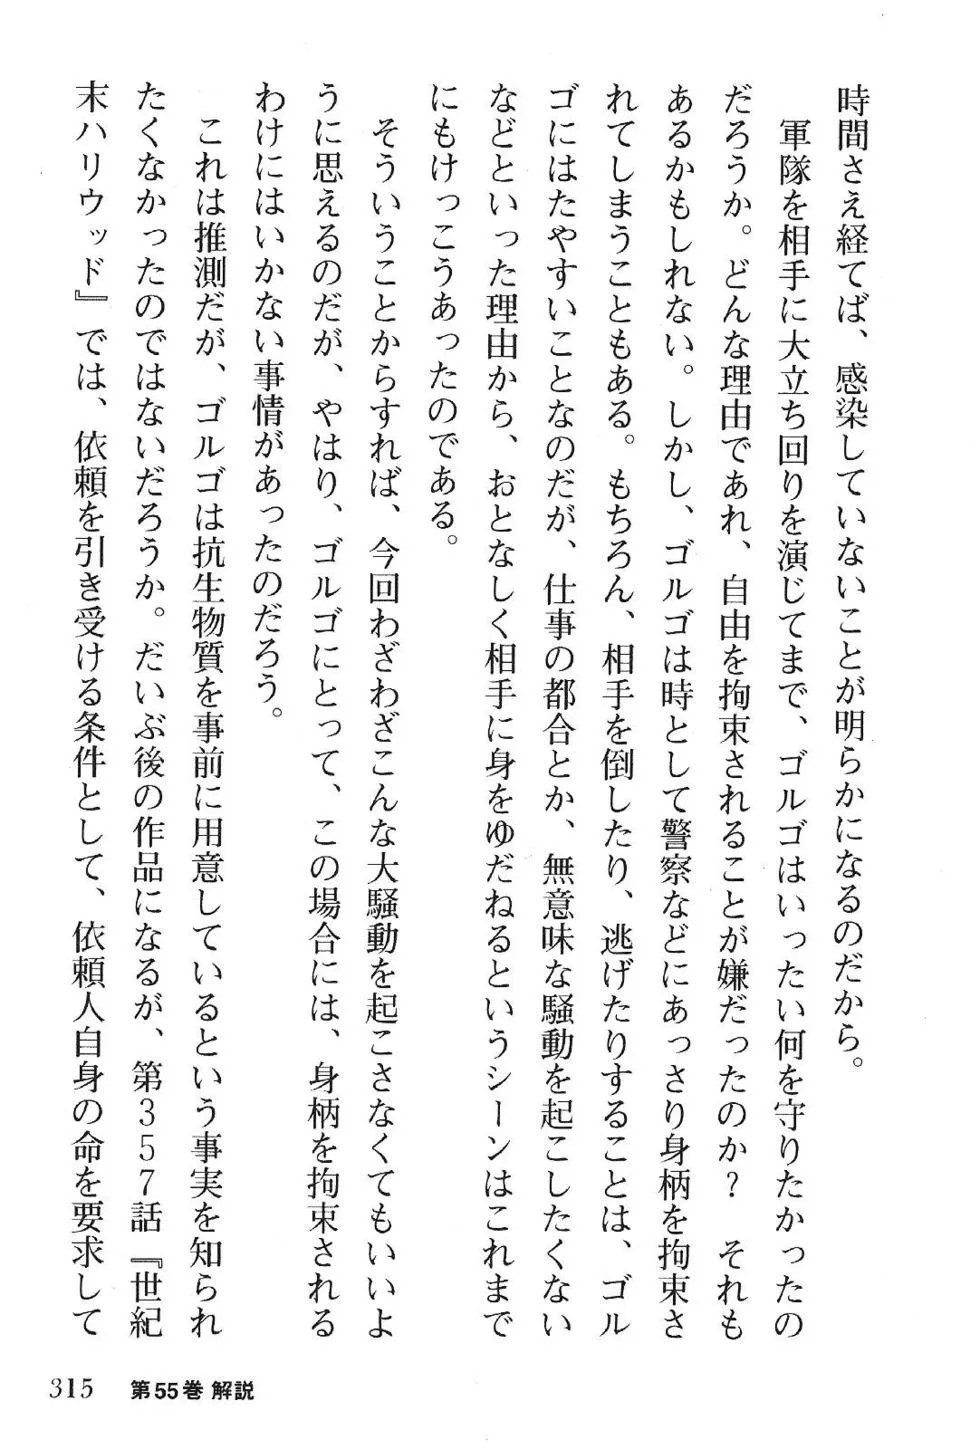 時間さえ経てば、感染していないことが明らかになるのだから。
　軍隊を相手に大立ち回りを演じてまで、ゴルゴはいったい何を守りたかったの
だろうか。どんな理由であれ、自由を拘束されることが嫌だったのか？　それも
あるかもしれない。しかし、ゴルゴは時として警察などにあっさり身柄を拘束さ
れてしまうこともある。もちろん、相手を倒したり、逃げたりすることは、ゴル
ゴにはたやすいことなのだが、仕事の都合とか、無意味な騒動を起こしたくない
などといった理由から、おとなしく相手に身をゆだねるというシーンはこれまで
にもけっこうあったのである。
　そういうことからすれば、今回わざわざこんな大騒動を起こさなくてもいいよ
うに思えるのだが、やはり、ゴルゴにとって、この場合には、身柄を拘束される
わけにはいかない事情があったのだろう。
　これは推測だが、ゴルゴは抗生物質を事前に用意しているという事実を知られ
たくなかったのではないだろうか。だいぶ後の作品になるが、第３５７話『世紀
末ハリウッド』では、依頼を引き受ける条件として、依頼人自身の命を要求して
315　第55巻 解説